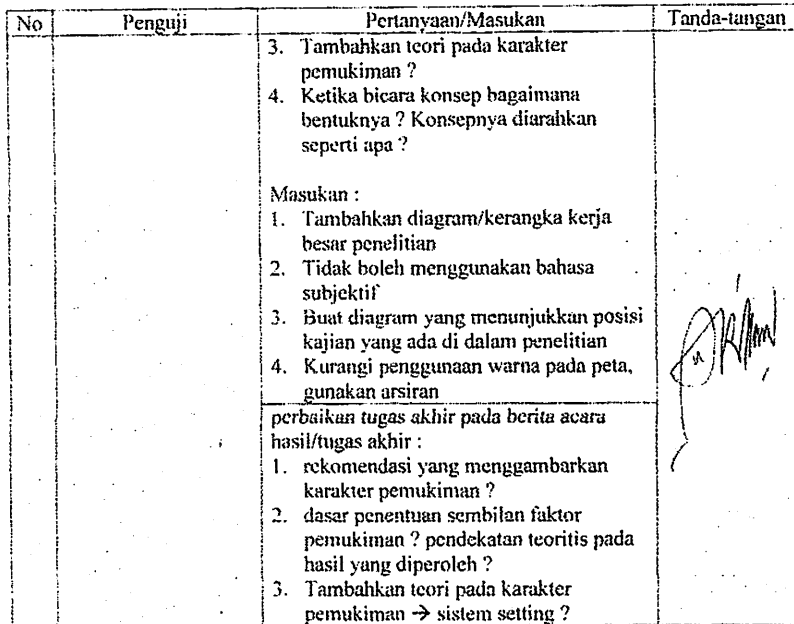 No Penguji Pertanyaan/Masukan Tanda-tangan
3. Tambahkan teori pada karakter
pemukiman ?
4. Ketika bicara konsep bagaimana
bentuknya ? Konsepnya diarahkan
seperti apa ?
Masukan :
1. Tambahkan diagram/kerangka kerja
besar penelitian
2. Tidak boleh menggunakan bahasa
subjektif
3. Buat diagram yang menunjukkan posisi
kajian yang ada di dalam penelitian
4. Kurangi penggunaan warna pada peta,
gunakan arsiran
perbaikan tugas akhir pada berita acara
hasil/tugas akhir :
1. rekomendasi yang menggambarkan
karakter pemukiman ?
2. dasar penentuan sembilan faktor
pemukiman ? pendekatan teoritis pada
hasil yang diperoleh ?
3. Tambahkan teori pada karakter
pemukiman → sistem setting ?